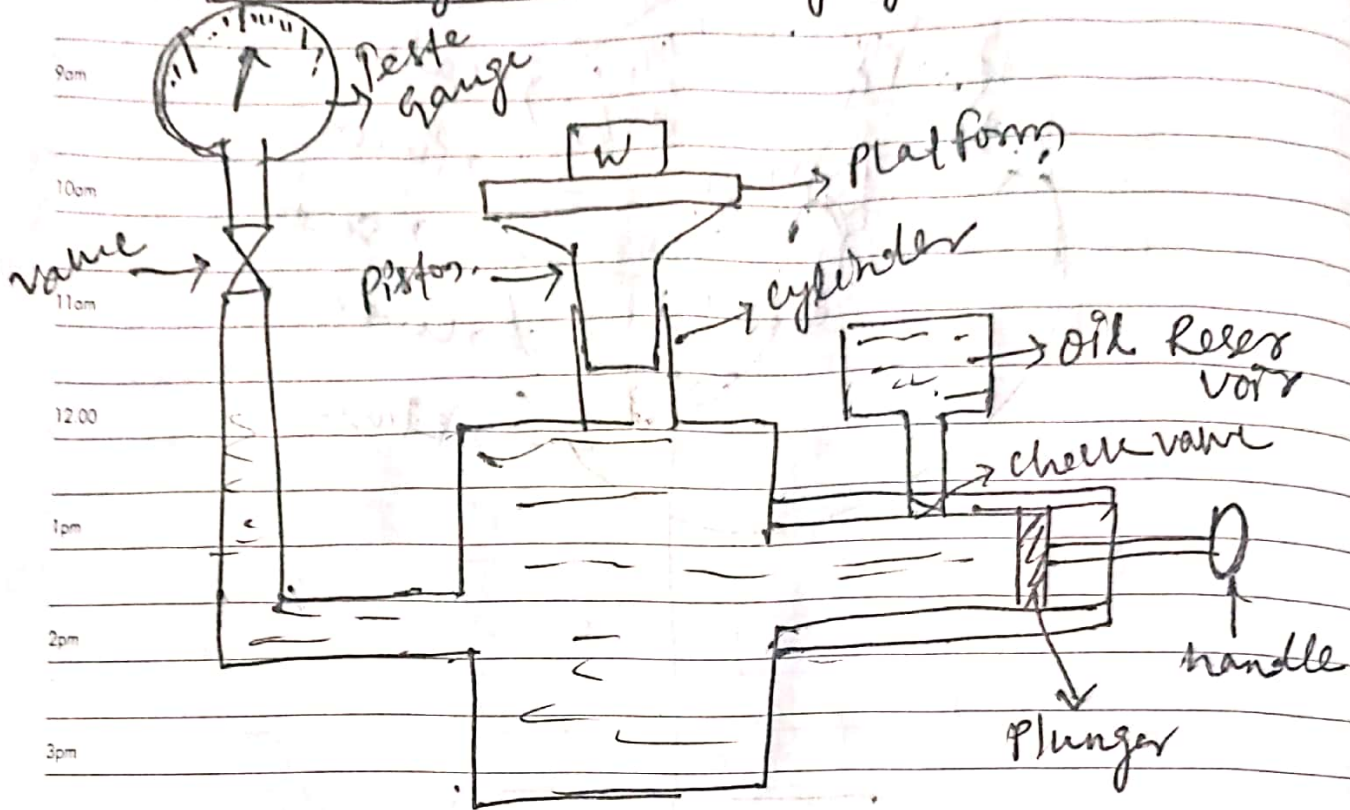 9am
Teste
gauge
W
Platform
10am
valve
Piston.
cylinder
11am
Oil Reser
voir
12.00
check valve
1pm
2pm
handle
Plunger
3pm